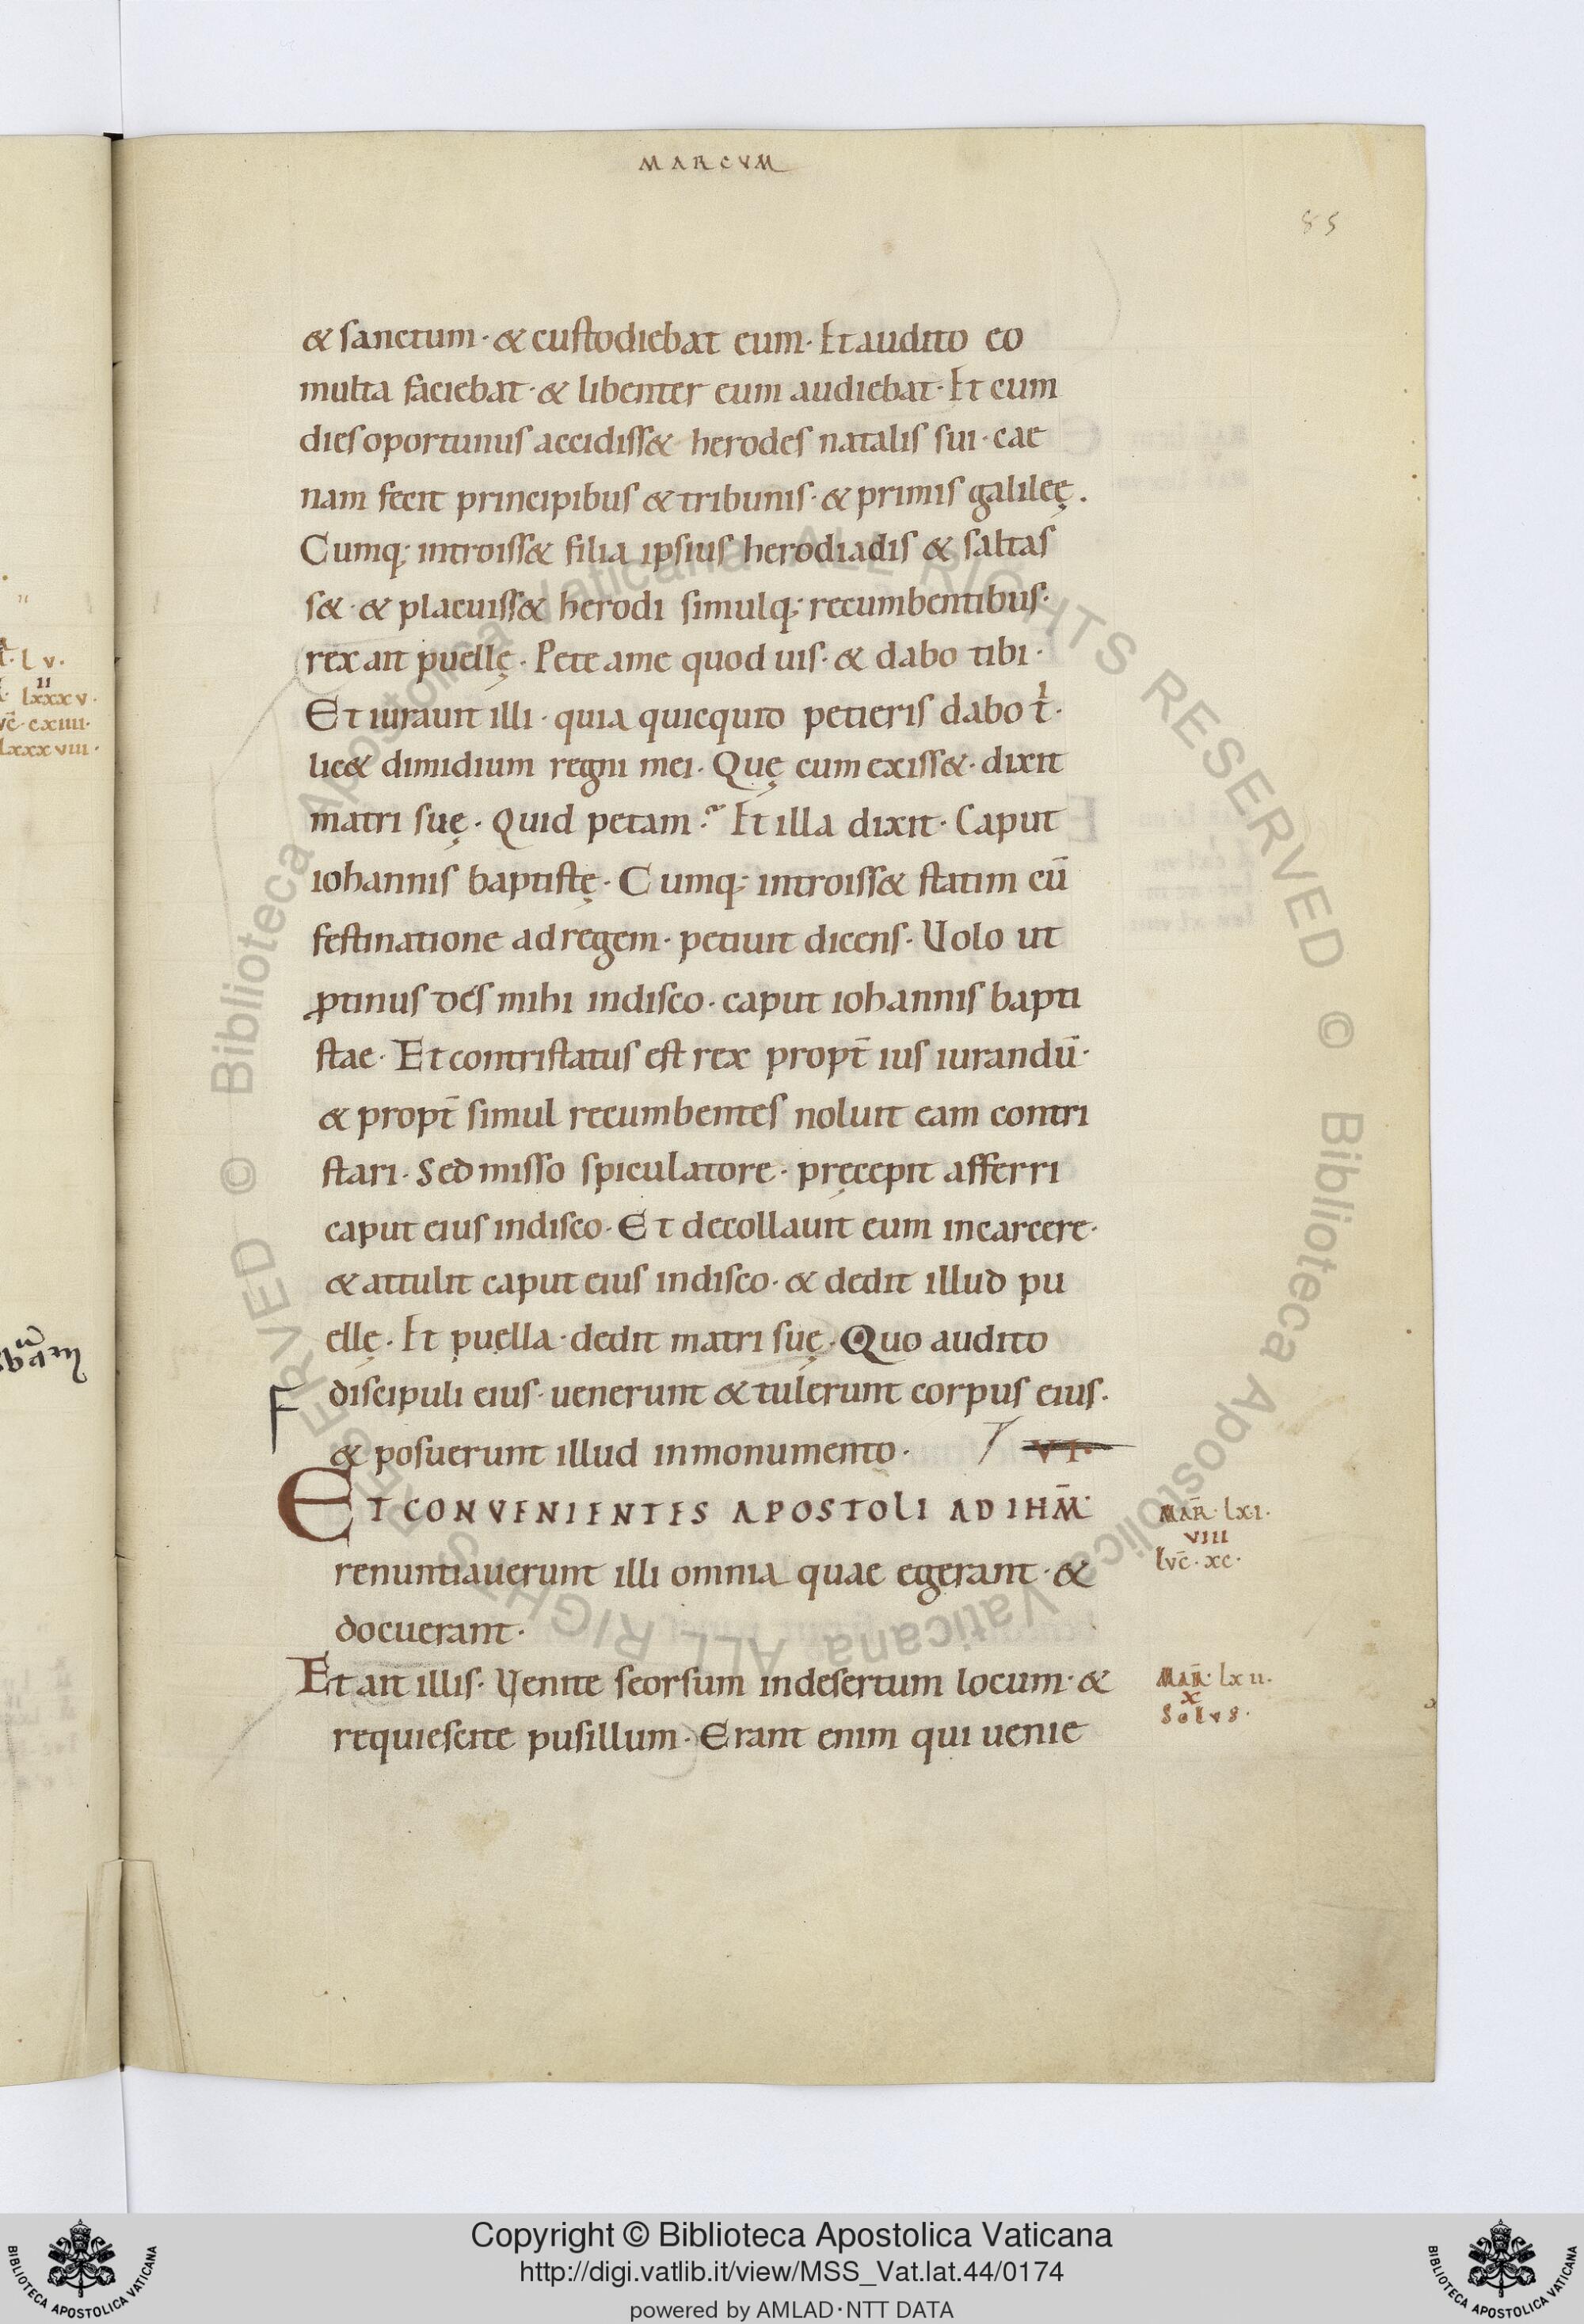 MARCVM
85
& sanctum · & custodiebat eum · Et audito eo
multa faciebat · & libenter eum audiebat · Et cum
dies oportunus accidiss& herodes natalis sui · cae
nam fecit principibus & tribunis · & primis galileę .
Cumq; introiss& filia ipsius herodiadis & saltas
s& · & placuiss& herodi simulq; recumbentibus ·
rex ait puellę · Pete ame quod uis · & dabo tibi ·
Et iurauit illi · quia quicquid petieris dabo tⁱ ·
lic& dimidium regni mei · Quę cum exiss& · dixit
matri suę · Quid petam ? Et illa dixit · Caput
iohannis baptistę · Cumq; introiss& statim cū
festinatione ad regem · petiuit dicens · Uolo ut
ꝓtinus des mihi indisco · caput iohannis bapti
stae · Et contristatus est rex propt̄ ius iurandū ·
& propt̄ simul recumbentes noluit eam contri
stari · Sed misso spiculatore · pręcepit afferri
caput eius indisco · Et decollauit eum incarcere ·
& attulit caput eius indisco · & dedit illud pu
ellę · Et puella · dedit matri suę · Quo audito
discipuli eius · uenerunt & tulerunt corpus eius ·
& posuerunt illud inmonumento · VI ·
ET CONVENIENTES APOSTOLI AD IHM̄ ·
MAR̄ · lxi ·
VIII
lvc̄ · xc ·
renuntiauerunt illi omnia quae egerant · &
docuerant ·
Et ait illis · Uenite seorsum indesertum locum · &
MAR̄ · lxii ·
x
Solvs ·
requiescite pusillum · Erant enim qui uenie
l v ·
II
lxxxv ·
vc̄ · cxiiii ·
lxxxviii ·
© Biblioteca Apostolica Vaticana ALL RIGHTS RESERVED © Biblioteca Apostolica Vaticana ALL RIGHTS RESERVED
Copyright © Biblioteca Apostolica Vaticana
http://digi.vatlib.it/view/MSS_Vat.lat.44/0174
powered by AMLAD · NTT DATA
BIBLIOTECA APOSTOLICA VATICANA
BIBLIOTECA APOSTOLICA VATICANA